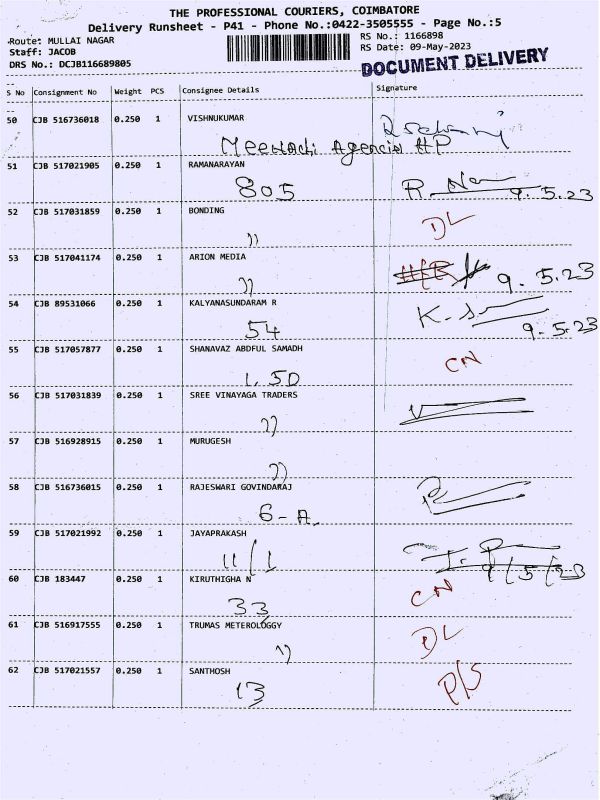 THE PROFESSIONAL COURIERS, COIMBATORE
Delivery Runsheet - P41 - Phone No.:0422-3505555 - Page No.:5
Route: MULLAI NAGAR
RS No.: 1166898
Staff: JACOB
RS Date: 09-May-2023
DRS No.: DCJB116689805
DOCUMENT DELIVERY
S No Consignment No Weight PCS Consignee Details Signature
50 CJB 516736018 0.250 1 VISHNUKUMAR
Meenachi Agencis HP
51 CJB 517021905 0.250 1 RAMANARAYAN
805 9.5.23
52 CJB 517031859 0.250 1 BONDING
)) DL
53 CJB 517041174 0.250 1 ARION MEDIA
)) 9.5.23
54 CJB 89531066 0.250 1 KALYANASUNDARAM R
54 9.5.23
55 CJB 517057877 0.250 1 SHANAVAZ ABDFUL SAMADH
1, 5D CN
56 CJB 517031839 0.250 1 SREE VINAYAGA TRADERS
))
57 CJB 516928915 0.250 1 MURUGESH
))
58 CJB 516736015 0.250 1 RAJESWARI GOVINDARAJ
6-A.
59 CJB 517021992 0.250 1 JAYAPRAKASH
11/1 9/5/23
60 CJB 183447 0.250 1 KIRUTHIGHA N
33 CN
61 CJB 516917555 0.250 1 TRUMAS METEROLOGGY
)) DL
62 CJB 517021557 0.250 1 SANTHOSH
13 P/S